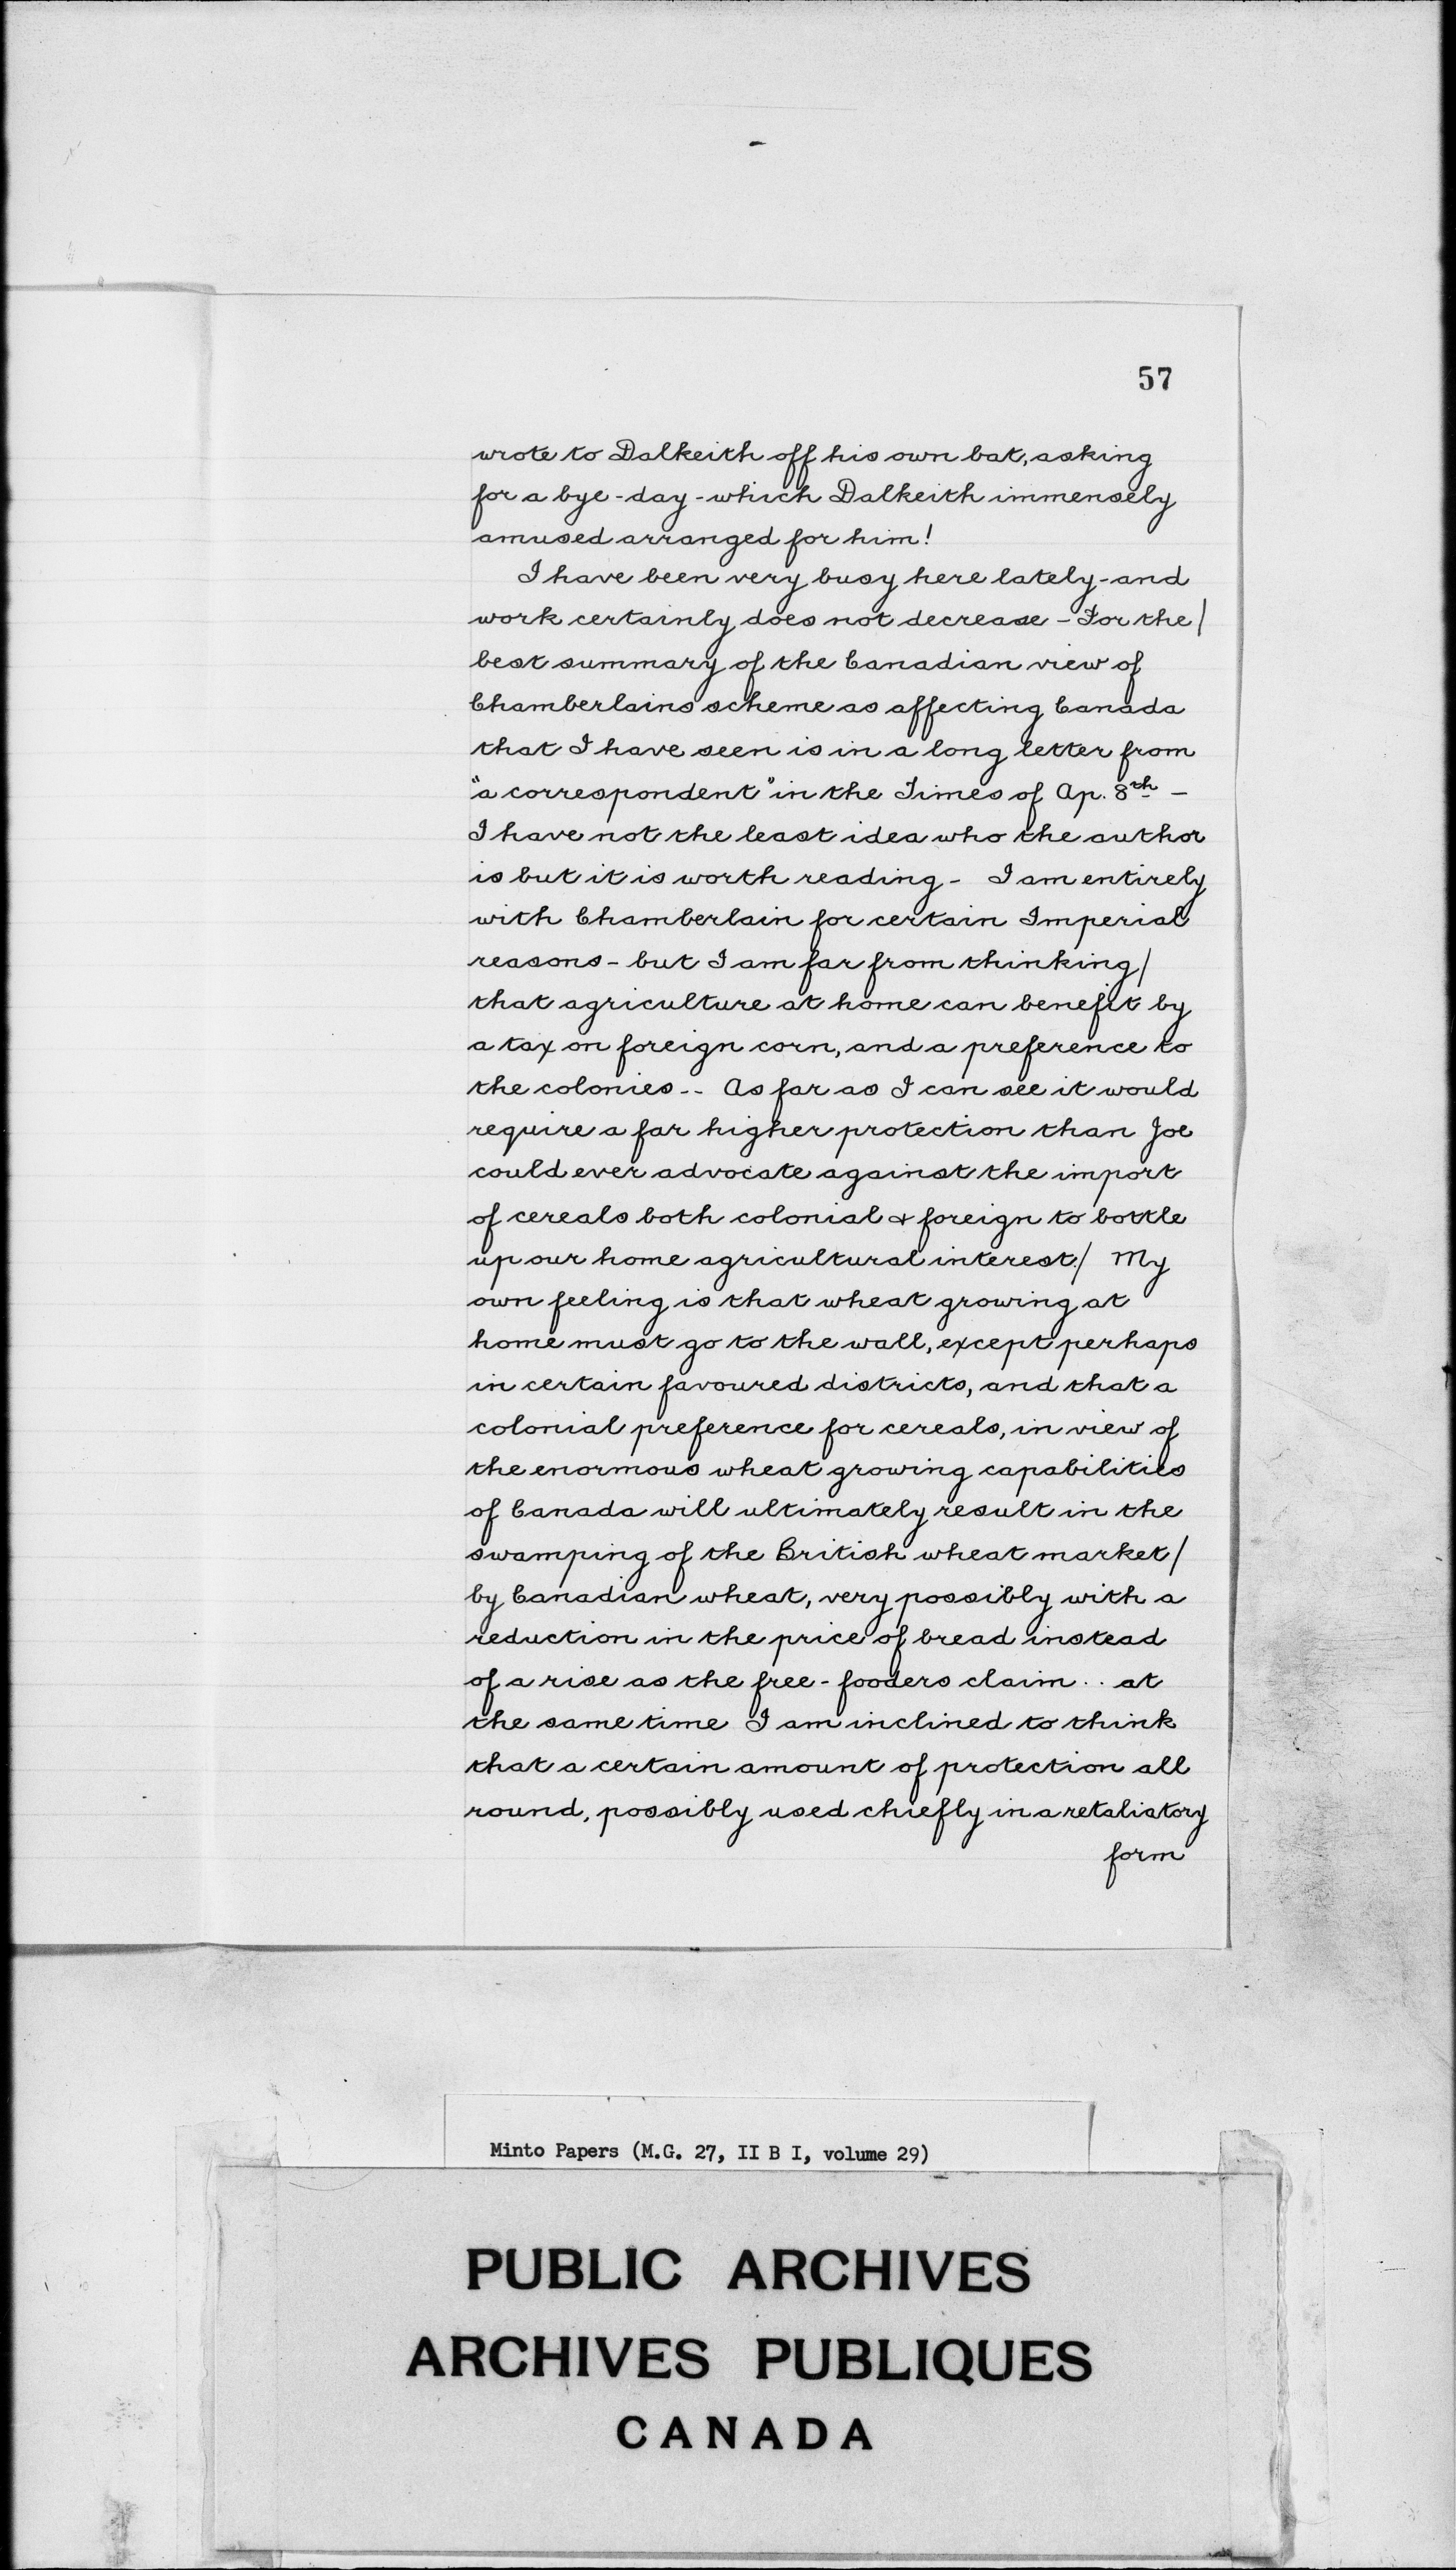 57
wrote to Dalkeith off his own bat, asking
for a bye-day - which Dalkeith immensely
amused arranged for him!
I have been very busy here lately - and
work certainly does not decrease - For the/
best summary of the Canadian view of
Chamberlains scheme as affecting Canada
that I have seen is in a long letter from
"a correspondent" in the Times of Ap. 8th -
I have not the least idea who the author
is but it is worth reading - I am entirely
with Chamberlain for certain Imperial
reasons - but I am far from thinking/
that agriculture at home can benefit by
a tax on foreign corn, and a preference to
the colonies -- As far as I can see it would
require a far higher protection than Joe
could ever advocate against the import
of cereals both colonial & foreign to bottle
up our home agricultural interest./ My
own feeling is that wheat growing at
home must go to the wall, except perhaps
in certain favoured districts, and that a
colonial preference for cereals, in view of
the enormous wheat growing capabilities
of Canada will ultimately result in the
swamping of the British wheat market/
by Canadian wheat, very possibly with a
reduction in the price of bread instead
of a rise as the free-fooders claim .. at
the same time I am inclined to think
that a certain amount of protection all
round, possibly used chiefly in a retaliatory
form
Minto Papers (M.G. 27, II B I, volume 29)
PUBLIC ARCHIVES
ARCHIVES PUBLIQUES
CANADA